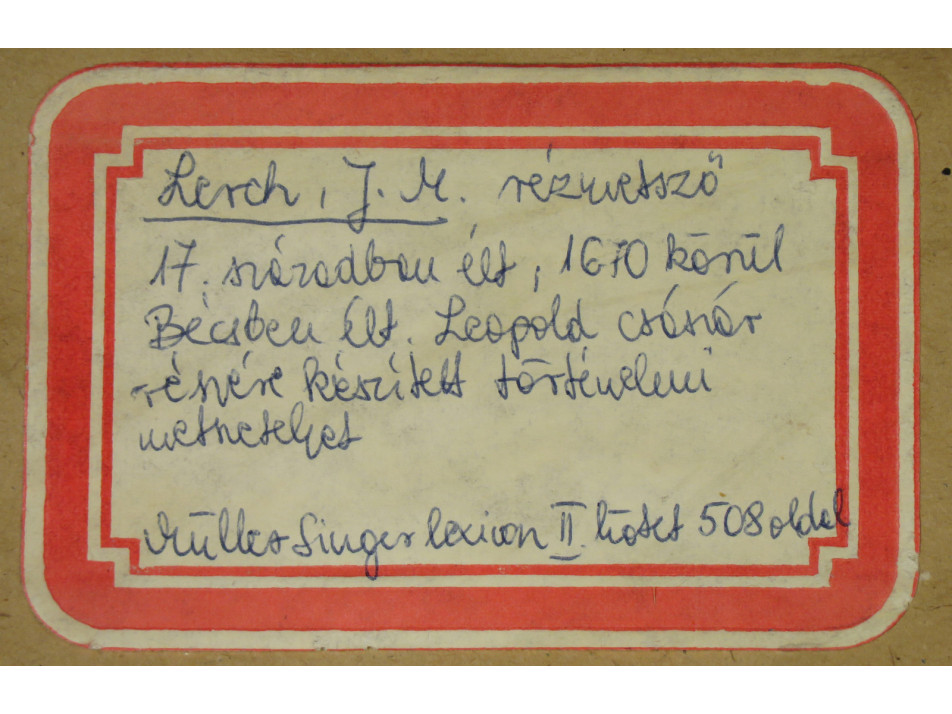 Lerch, J. M. rézmetsző
17. században élt, 1670 körül
Bécsben élt. Leopold császár
részére készített történelmi
metszeteket
Müller Singer lexicon II. kötet 508 oldal